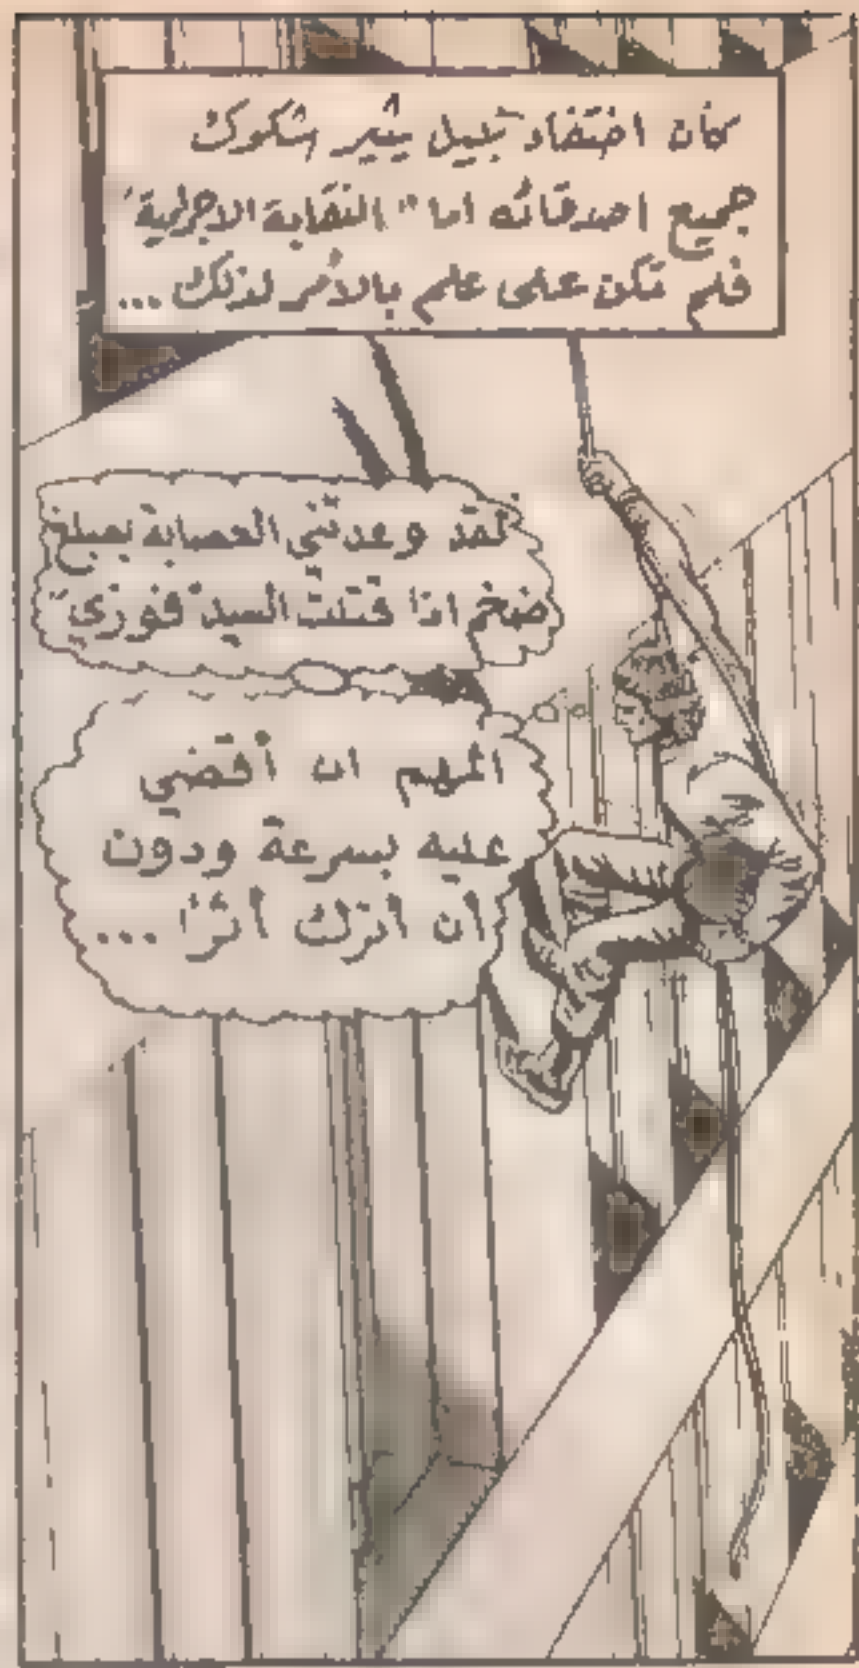 كان اختفاء "نبيل" يثير شكوك
جميع اصدقائه اما "النقابة الاجرامية"
فلم تكن على علم بالأمر لذلك ...
لقد وعدتني العصابة بمبلغ
ضخم اذا قتلت السيد "فوزي"
المهم ان أقضي
عليه بسرعة ودون
أن اترك أثرًا ...